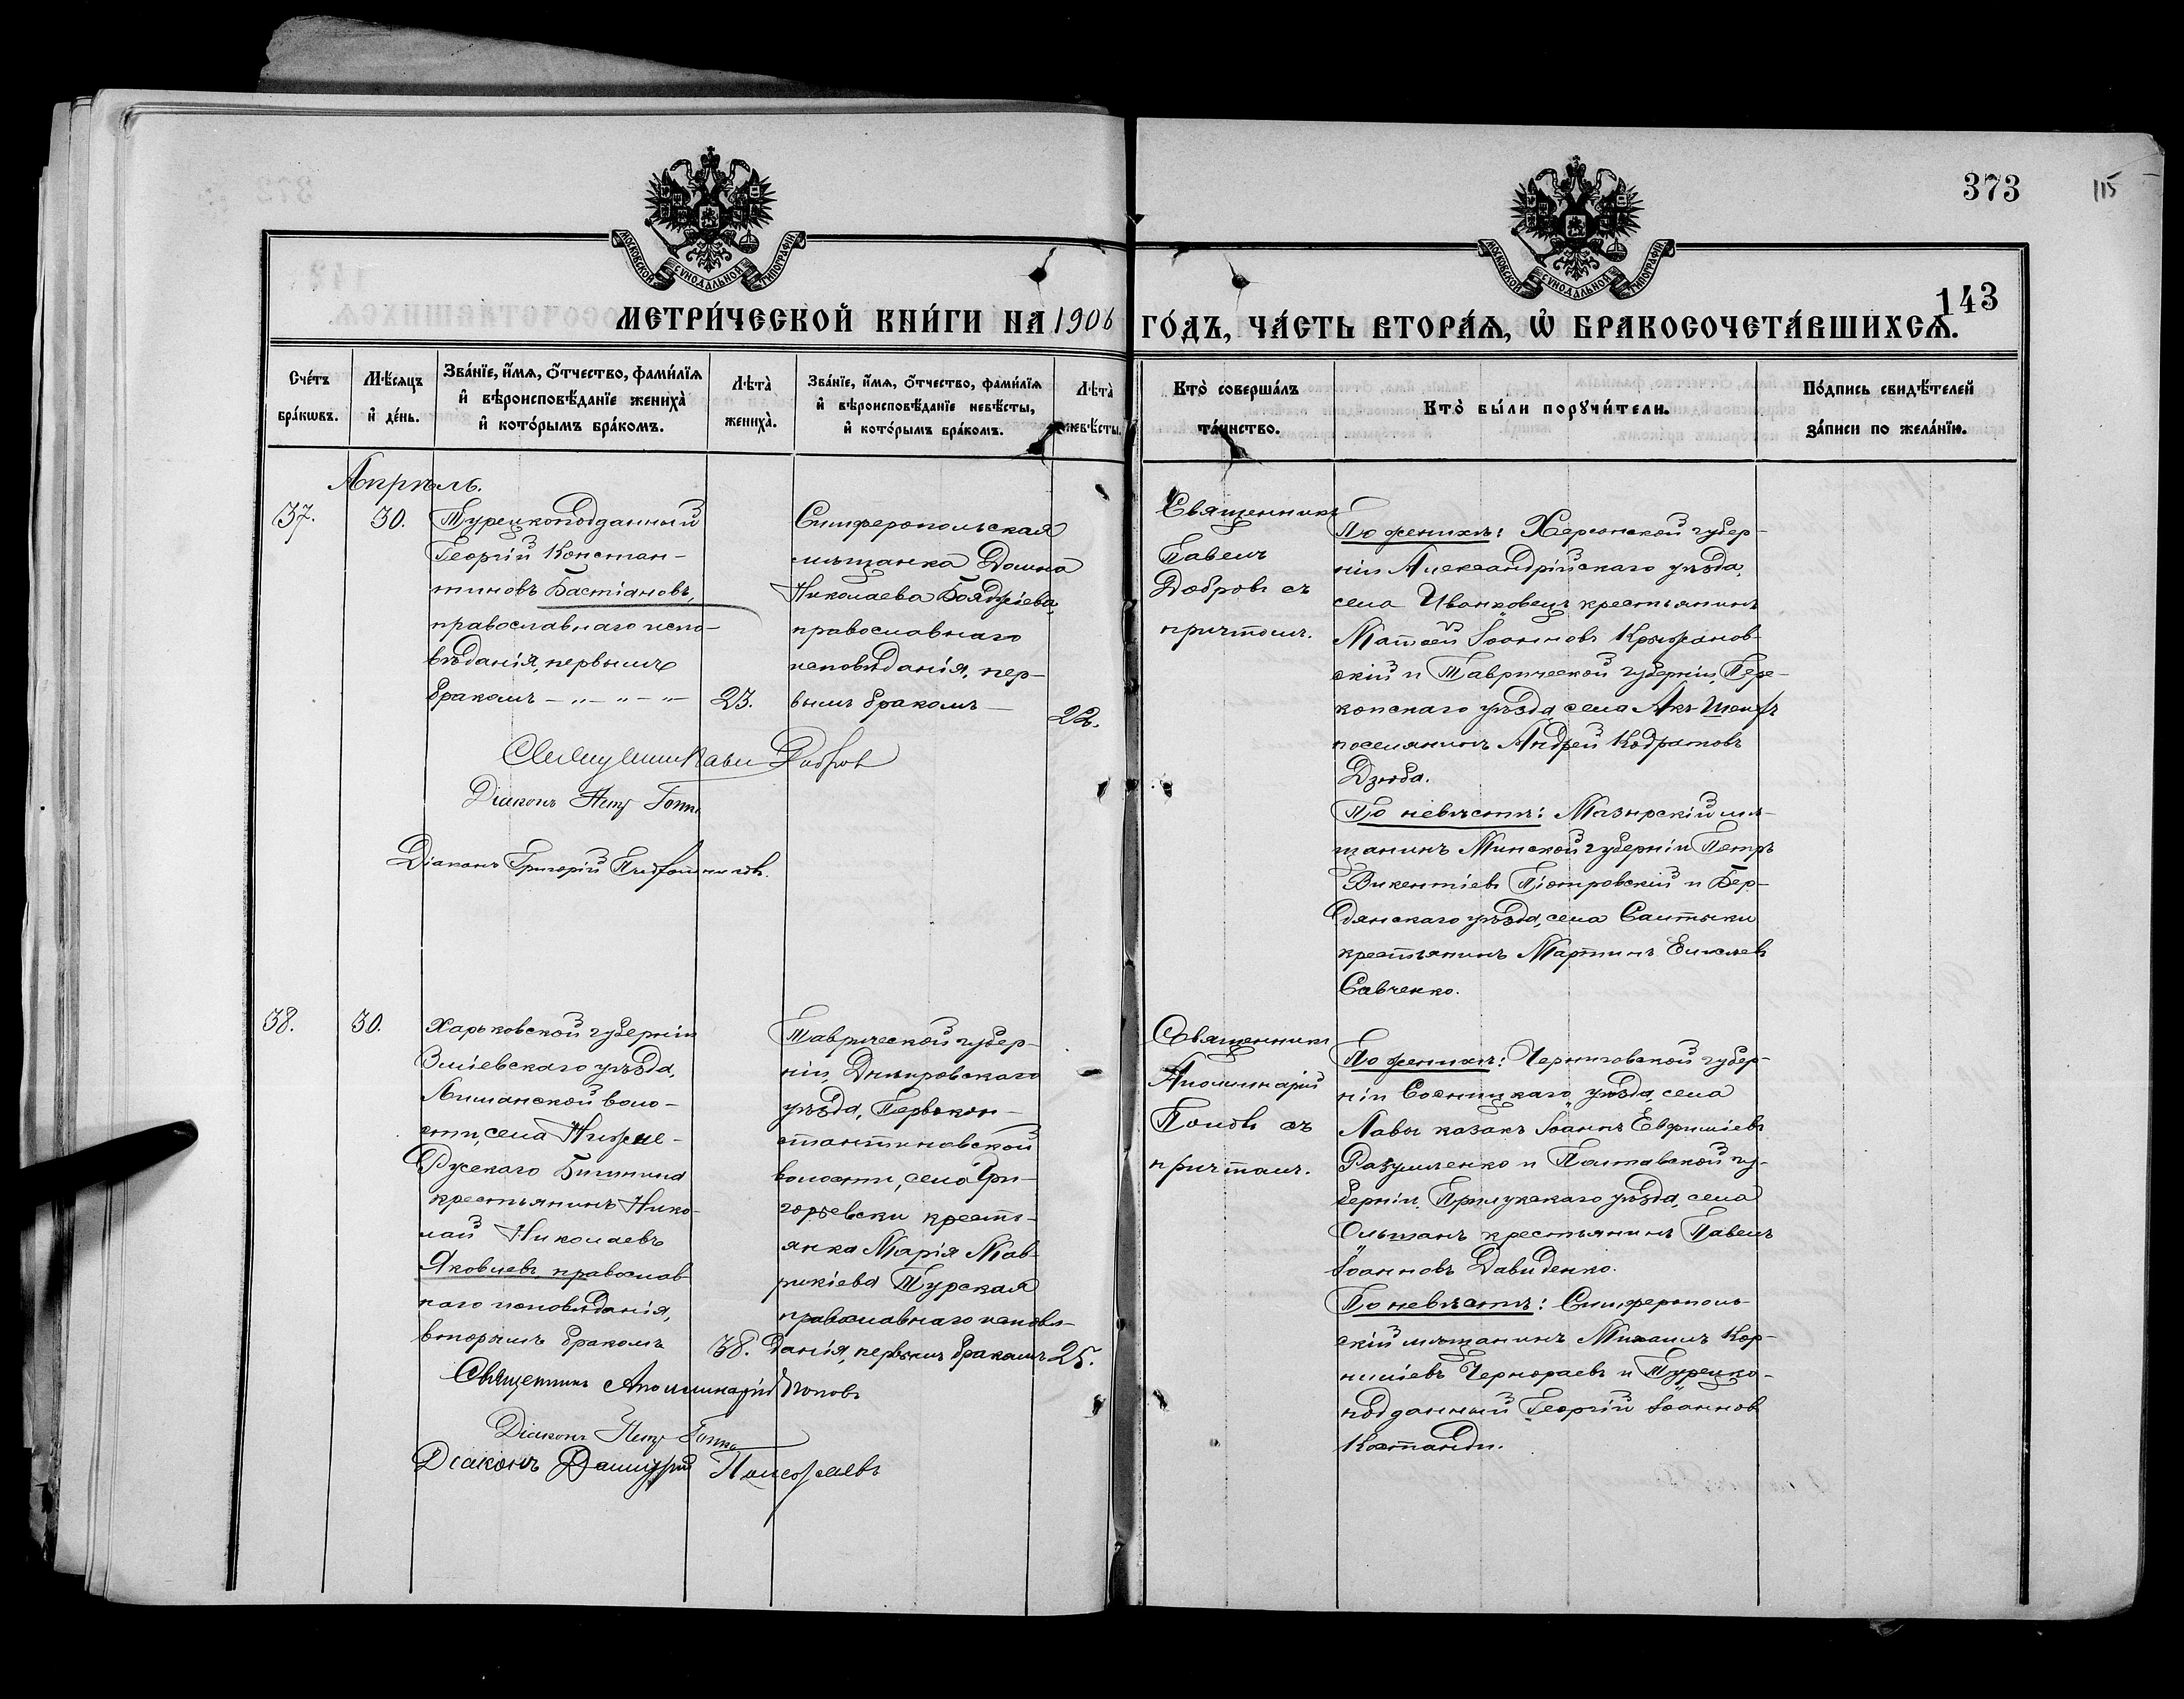 МОСКОВСКОЙ СѴНОДАЛЬНОЙ ТИПОГРАФІИ
МОСКОВСКОЙ СѴНОДАЛЬНОЙ ТИПОГРАФІИ
373
115
143
МЕТРИ́ЧЕСКОЙ КНИ́ГИ НА 1906 ГО́ДЪ, ЧА́СТЬ ВТОРА́Я, Ѡ҆ БРАКОСОЧЕТА́ВШИХСЯ.
Сче́тъ
бра́кѡвъ.
Мѣ́сяцъ
и҆ де́нь.
Зва́нїе, и҆́мя, ѻ҆́тчество, фами́лїя
и҆ вѣроисповѣ́данїе жениха̀
и҆ кото́рымъ бра́комъ.
Лѣта̀
жениха̀.
Зва́нїе, и҆́мя, ѻ҆́тчество, фами́лїя
и҆ вѣроисповѣ́данїе невѣ́сты,
и҆ кото́рымъ бра́комъ.
Лѣта̀
невѣ́сты.
Кто̀ соверша́лъ
та́инство.
Кто̀ бы́ли порꙋчи́тели.
По́дпись свидѣ́телей
за́писи по жела́нїю.
Апрѣль.
37.
30.
Турецкоподданный
Георгій Констан-
тиновъ Бастіановъ,
православнаго испо-
вѣданія, первымъ
бракомъ — „ — „ — „ —
23.
Симферопольская
мѣщанка Домна
Николаева Бояджіева
православнаго
исповѣданія, пер-
вымъ бракомъ —
22.
Священникъ
Павелъ
Добровъ съ
причтомъ.
По женихѣ: Херсонской губер-
ніи Александрійскаго уѣзда,
села Иванковецъ крестьянинъ
Матѳей Іоанновъ Крыжанов-
скій и Таврической губерніи, Пере-
копскаго уѣзда, села Акъ-Шеихъ
поселянинъ Андрей Кодратовъ
Дзюба.
По невѣстѣ: Мазырскій мѣ-
щанинъ Минской губерніи Петръ
Викентіевъ Піотровскій и Бер-
дянскаго уѣзда, села Салтыки
крестьянинъ Мартинъ Елисѣевъ
Савченко.
Священникъ Павелъ Добровъ
Діаконъ Петръ
Діаконъ Григорій
38.
30.
Харьковской губерніи
Зміевскаго уѣзда,
Лиманской воло-
сти, села Нижне-
Русскаго Бишкина
крестьянинъ Нико-
лай Николаевъ
Яковлевъ, православ-
наго исповѣданія,
вторымъ бракомъ
38.
Таврической губер-
ніи, Днѣпровскаго
уѣзда, Первокон-
стантиновской
волости, села Гри-
горьевки кресть-
янка Марія Мав-
рикіева Турская
православнаго исповѣ-
данія, первымъ бракомъ
25.
Священникъ
Аполлинарій
Поповъ съ
причтомъ.
По женихѣ: Черниговской губер-
ніи Сосницкаго уѣзда, села
Лавы казакъ Іоаннъ Евфиміевъ
Разумленко и Полтавской гу-
берніи, Прилукскаго уѣзда, села
Ольшанъ крестьянинъ Павелъ
Іоанновъ Давиденко.
По невѣстѣ: Симферополь-
скій мѣщанинъ Михаилъ Кор-
ниліевъ Чернораевъ и Турецко-
подданный Георгій Іоанновъ
Костанди.
Священникъ Аполлинарій Поповъ
Діаконъ Петръ
Діаконъ Димитрій